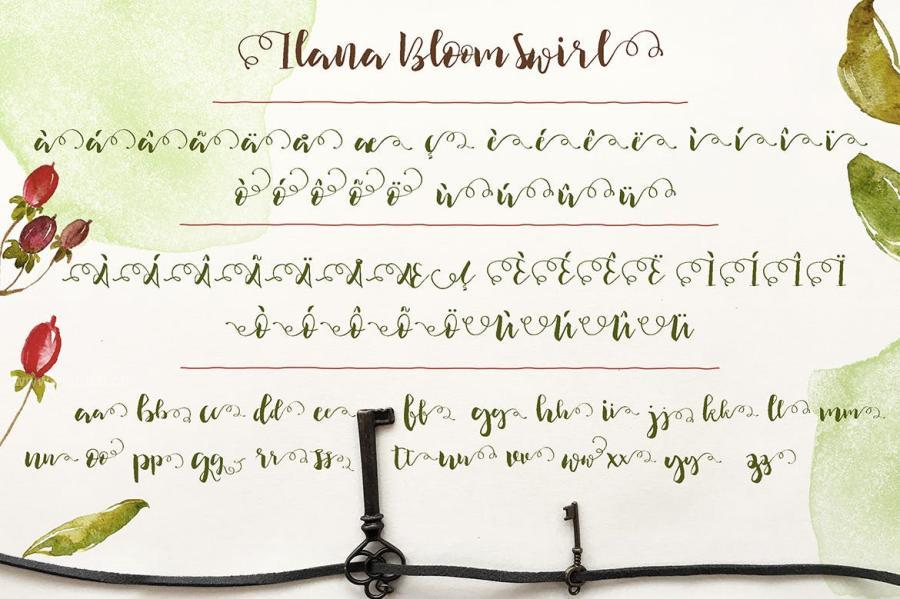 Ilana Bloom Swirl
à á â ã ä å æ ç è é ê ë ì í î ï
ò ó ô õ ö ù ú û ü
À Á Â Ã Ä Å Æ Ç È É Ê Ë Ì Í Î Ï
Ò Ó Ô Õ Ö Ù Ú Û Ü
aa bb cc dd ee ff gg hh ii jj kk ll mm
nn oo pp qq rr ss tt uu vv ww xx yy zz